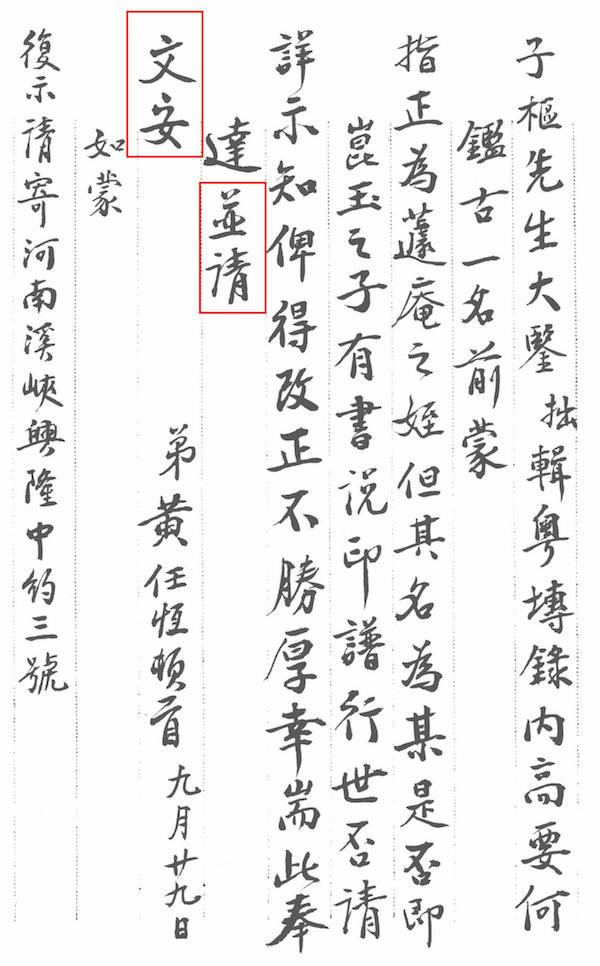 子樞先生大鑒拙輯粵塼錄內高要何
鑑古一名前蒙
指正為蘧庵之姪但其名為某是否即
崑玉之子有書說印譜行世否請
詳示知俾得改正不勝厚幸耑此奉
達並請
文安
弟黃任恆頓首九月廿九日
如蒙
復示請寄河南溪峽興隆中約三號